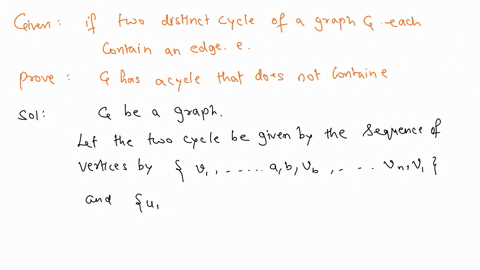 Given: if two distinct cycle of a graph G each
contain an edge. e.
prove: G has acycle that does not containe
Sol: G be a graph.
Let the two cycle be given by the sequence of
vertices by { v₁, ...... a, b, v_b, - ... v_n, v₁ }
and { u₁